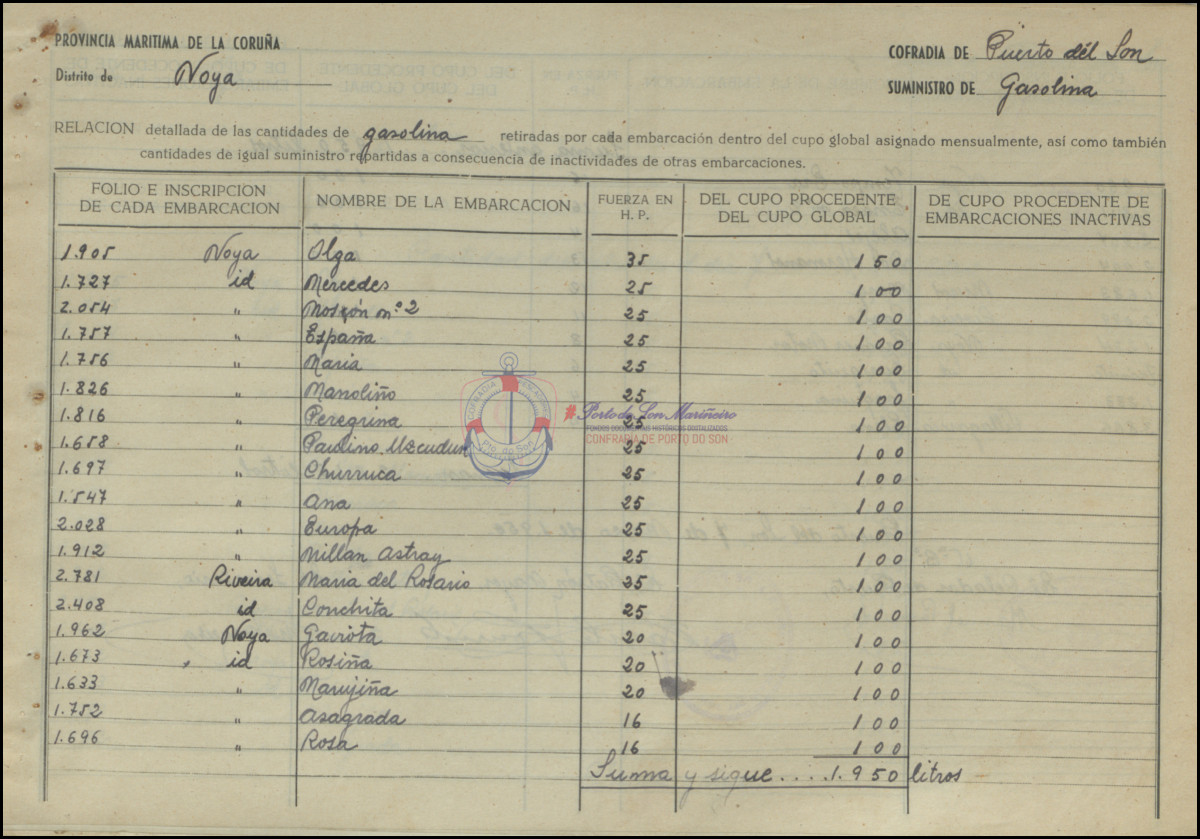 PROVINCIA MARITIMA DE LA CORUÑA
Distrito de Noya
COFRADIA DE Puerto del Son
SUMINISTRO DE Gasolina
RELACION detallada de las cantidades de gasolina retiradas por cada embarcación dentro del cupo global asignado mensualmente, así como también
cantidades de igual suministro repartidas a consecuencia de inactividades de otras embarcaciones.
FOLIO E INSCRIPCION DE CADA EMBARCACION NOMBRE DE LA EMBARCACION FUERZA EN H. P. DEL CUPO PROCEDENTE DEL CUPO GLOBAL DE CUPO PROCEDENTE DE EMBARCACIONES INACTIVAS
1.905 Noya Olga 35 150
1.727 id Mercedes 25 100
2.054 " nº 2 25 100
1.757 " España 25 100
1.756 " Maria 25 100
1.826 " Manoliño 25 100
1.816 " Peregrina 25 100
1.658 " Paulino Uzcudun 25 100
1.697 " Churruca 25 100
1.547 " Ana 25 100
2.028 " Europa 25 100
1.912 " Millan Astray 25 100
2.781 Riveira Maria del Rosario 25 100
2.408 id Conchita 25 100
1.962 Noya Gaviota 20 100
1.673 id Rosiña 20 100
1.633 " Marujiña 20 100
1.752 " Asagrada 16 100
1.696 " Rosa 16 100
Suma y sigue .... 1.950 litros
COFRADIA
Pto. do Son
# Porto do Son Mariñeiro
FONDOS DOCUMENTAIS HISTÓRICOS DIGITALIZADOS
CONFRARÍA DE PORTO DO SON